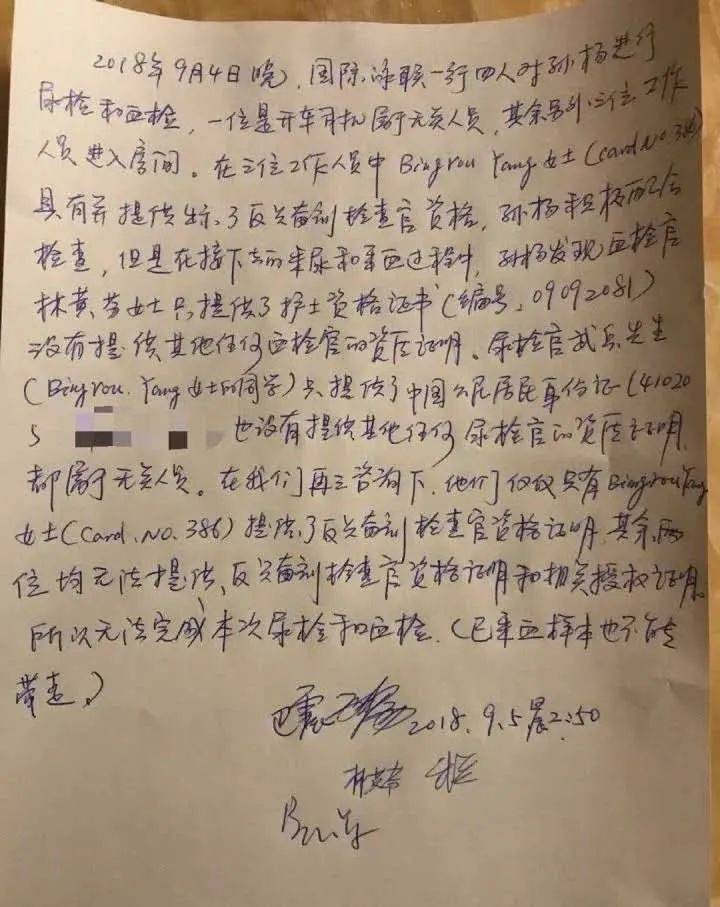 2018年9月4日晚，国际泳联一行四人对孙杨进行
尿检和血检，一位是开车司机属于无关人员，其余另外三位工作
人员进入房间。在三位工作人员中 Bingrou Yang 女士（card No 386）
具有并提供出示了反兴奋剂检查官资格，孙杨积极配合
检查，但是在接下去的采尿和采血过程中，孙杨发现血检官
林黄芬女士只提供了护士资格证书（编号：09092081）
没有提供其他任何血检官的资质证明。尿检官武兵先生
（Bingrou. Yang 女士的同学）只提供了中国公民居民身份证（41020
5 也没有提供其他任何尿检官的资质证明，
都属于无关人员。在我们再三咨询下，他们仅仅只有Bingrou Yang
女士（Card.No.386）提供了反兴奋剂检查官资格证明，其余两
位均无法提供反兴奋剂检查官资格证明和相关授权证明。
所以无法完成本次尿检和血检.（已采血样本也不能
带走。）
巴震 2018.9.5晨2:50